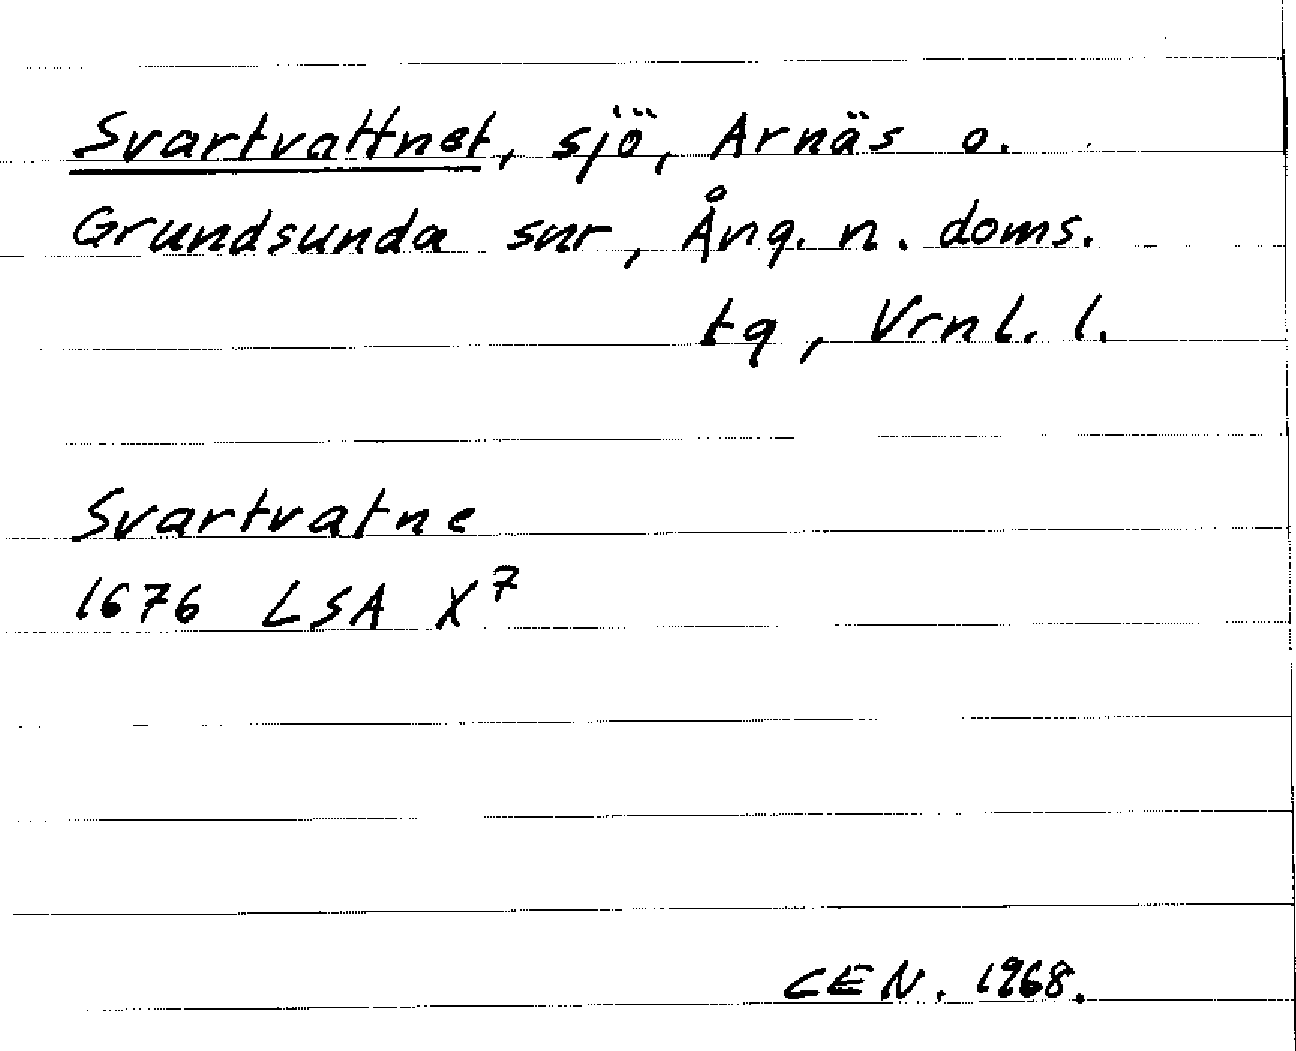 Svartvattnet, sjö, Arnäs o.
Grundsunda snr, Ång. n. doms.
tg, Vrnl. l.
Svartvatne
1676 LSA X7
CEN. 1968.